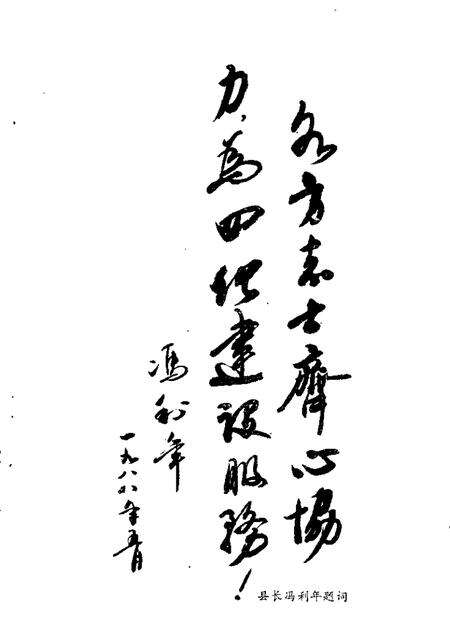 各方志士齊心協
力，為四化建设服務！
馮利年
一九八八年五月
县长冯利年题词